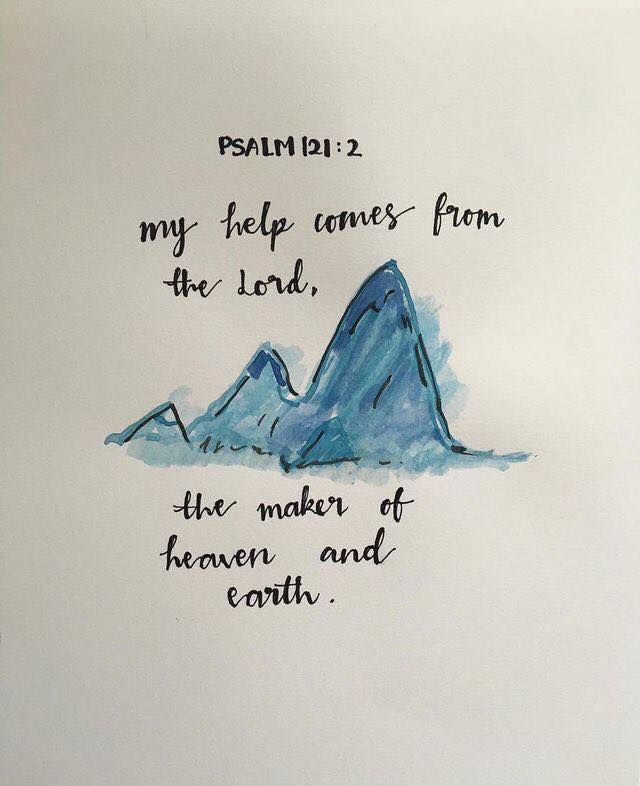 PSALM 121:2
my help comes from
the Lord,
the maker of
heaven and
earth.